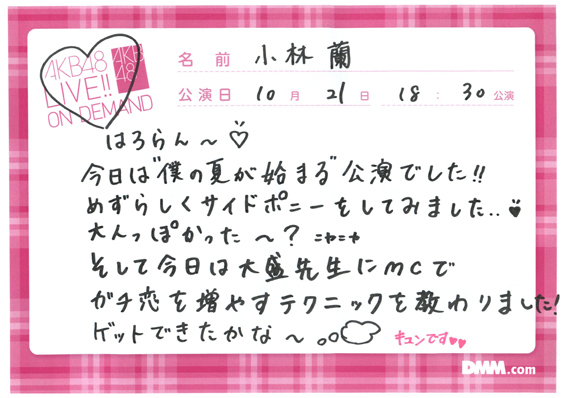 AKB48
LIVE!!
ON DEMAND
AKB
48
名前 小林 蘭
公演日 10月21日 18:30公演
はろらん〜♡
今日は"僕の夏が始まる"公演でした!!
めずらしくサイドポニーをしてみました..♥
大人っぽかった〜? ニヤニヤ
そして今日は大盛先生にMCで
ガチ恋を増やすテクニックを教わりました!
ゲットできたかな〜
キュンです♥♥
DMM.com